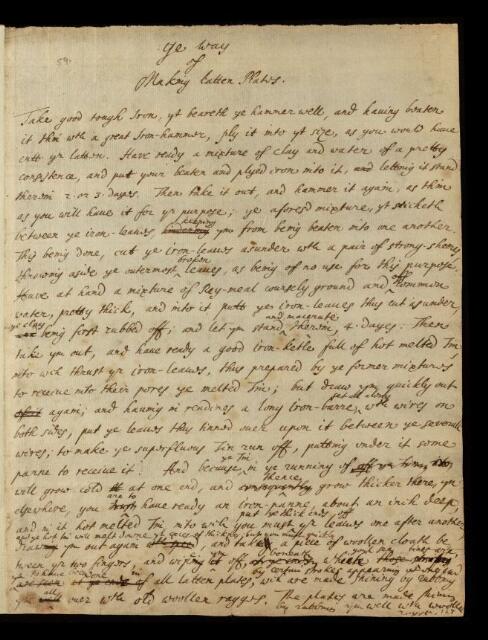 59.
Ye way
of
Making latten Plates.
Take good tough Iron, yt beareth ye hammer well, and having beaten
it thin with a great Iron-hammer, ply it into yt size, as you would have
cutt yr latten. Have ready a mixture of clay and water of a pretty
consistence, and put your beaten and plyed iron into it, and letting it stand
therein 2. or 3. dayes. Then take it out, and hammer it again, as thin
as you will have it for yr purpose; ye aforesd mixture, yt sticketh
between ye iron-leaves, keeping ym from being beaten into one another.
This being done, cut ye iron-leaves asunder with a pair of strong sheers,
throwing aside ye outermost broken leaves, as being of no use for this purpose.
Have at hand a mixture of Rey-meal coursely ground and of common
water, pretty thick, and into it putt yr iron-leaves thus cut asunder,
ye clay being first rubbed off; and let ym stand and macerate therein, 4. dayes. Then
take ym out, and have ready a good iron-ketle full of hot melted Tin,
into wch thrust yr iron-leaves, thus prepared by ye former mixtures
to receive into their pores ye melted Tin; but draw ym quickly out
again; and having in readines a long Iron-barre, set all along wth wires on
both sides, put ye leaves thus tinned over upon it between ye severale
wires; to make ye superfluous Tin run off, putting under it some
panne to receive it. And because ye Tin in ye running off
will grow cold at one end, and there grow thicker there, yn
elsewhere, you are to have ready an Iron-panne, about an inch deep,
and in it hot melted Tin, into wch you must put ye thick ends of yr leaves one after another
ym out again and take a piece of woollen cloath be
tween yr two fingers, and wiping it off,
of all latten plates, wch are made shining by
all over with old woollen raggs. The plates are made shining
by rubbing ym well with woollen